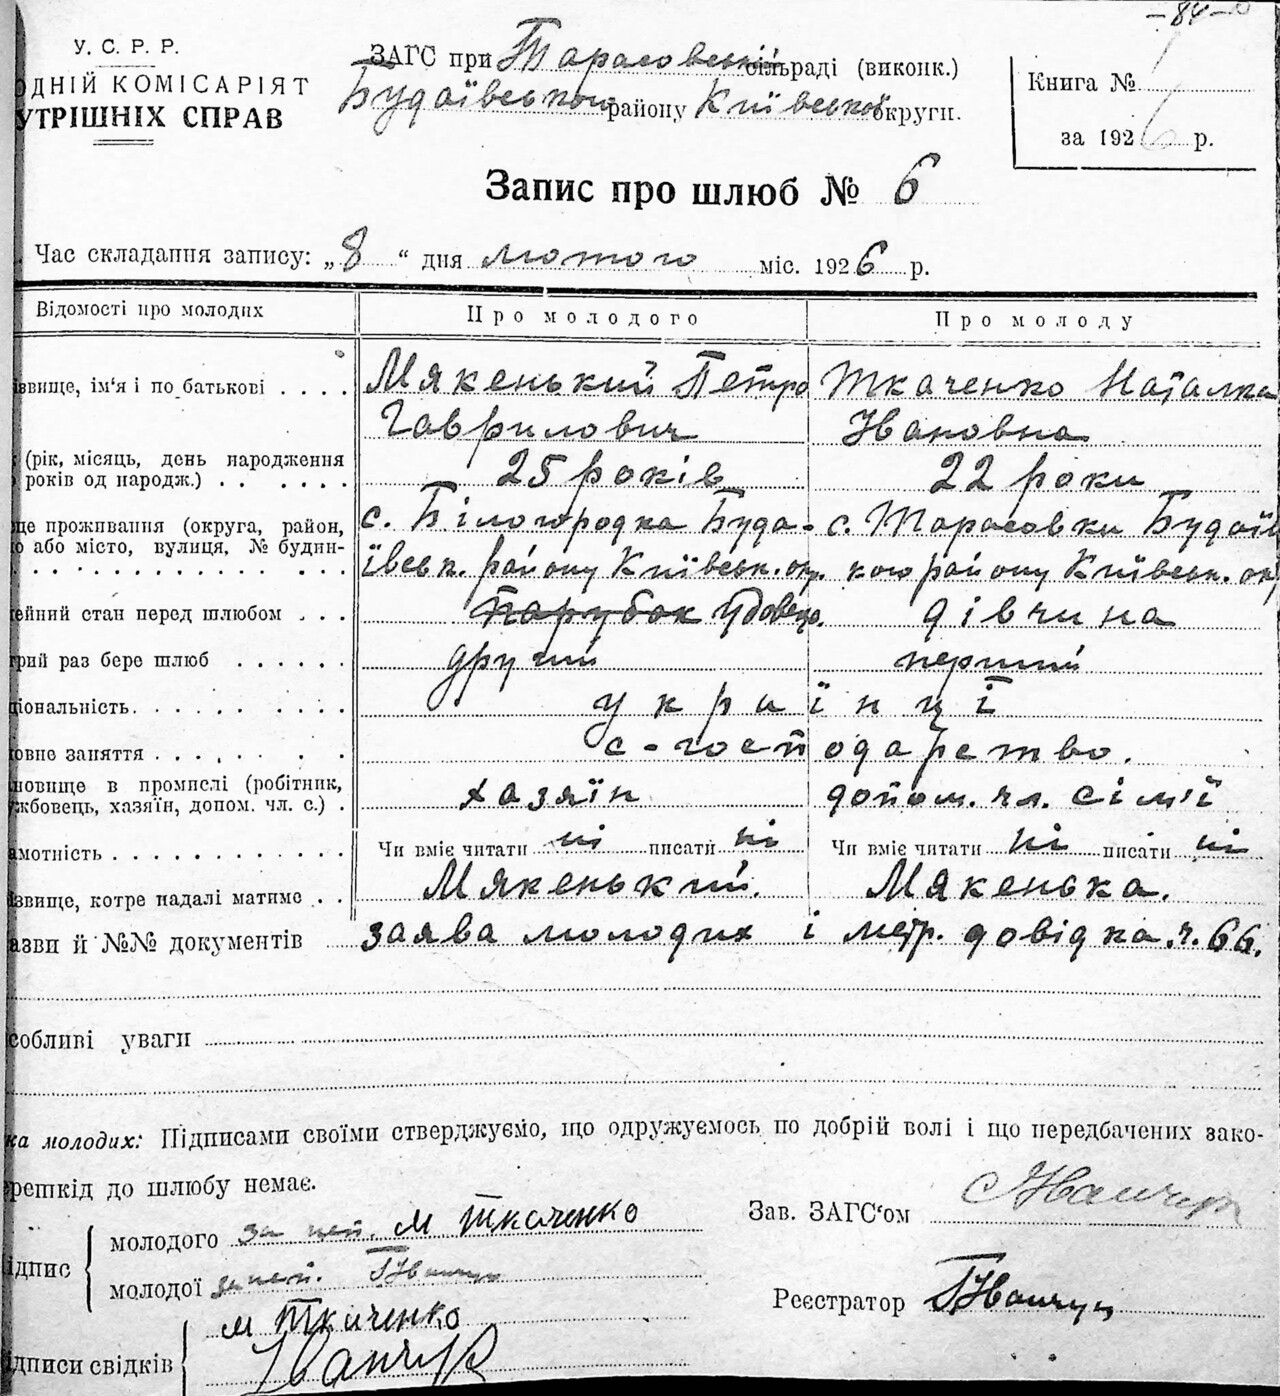 –84–
У. С. Р. Р.
ОДНІЙ КОМІСАРІЯТ
УТРІШНІХ СПРАВ
ЗАГС при Тарасовській сільраді (виконк.)
Будаївського району Київської округи.
Книга №
за 1926 р.
Запис про шлюб № 6
Час складання запису: „8“ дня лютого міс. 1926 р.
Відомості про молодих
Про молодого
Про молоду
ізвище, ім'я і по батькові . . . .
Мякенький Петро
Гаврилович
Ткаченко Наталка
Івановна
(рік, місяць, день народження
років од народж.) . . . . . .
25 років
22 роки
це проживання (округа, район,
о або місто, вулиця, № будин-
с. Білогородка Буда-
ївськ. району Київськ. окр.
с. Тарасовки Будаїв
кого району Київськ. окр
ейний стан перед шлюбом . . .
парубок Удовець.
дівчина
трий раз бере шлюб . . . . . .
другий
перший
ціональність. . . . . . . . . .
українці
овне заняття . . . . . . .
с-господарство.
новище в промислі (робітник,
жбовець, хазяїн, допом. чл. с.) .
хазяїн
допом. чл. сім'ї
амотність . . . . . . . . . . . .
Чи вміє читати ні писати ні
Чи вміє читати ні писати ні
ізвище, котре надалі матиме . .
Мякенький.
Мякенька.
азви й №№ документів заява молодих і метр. довідка ч. 66.
собливі уваги
ка молодих: Підписами своїми стверджуємо, що одружуємось по добрій волі і що передбачених зако-
решкід до шлюбу немає.
Зав. ЗАГС'ом Іванчук
ідпис
молодого за неп. М Ткаченко
молодої за неп. Іванчук
Реєстратор Іванчук
ідписи свідків
М Ткаченко
Іванчук